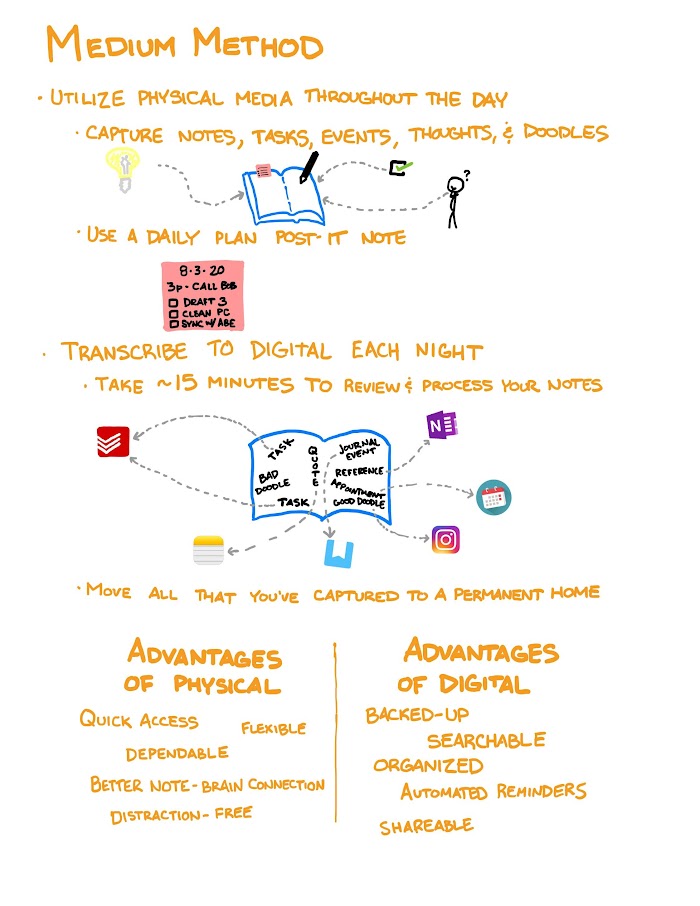 MEDIUM METHOD
· UTILIZE PHYSICAL MEDIA THROUGHOUT THE DAY
· CAPTURE NOTES, TASKS, EVENTS, THOUGHTS, & DOODLES
?
· USE A DAILY PLAN POST-IT NOTE
8·3·20
3p - CALL BOB
DRAFT 3
CLEAN PC
SYNC W/ ABE
· TRANSCRIBE TO DIGITAL EACH NIGHT
· TAKE ~15 MINUTES TO REVIEW & PROCESS YOUR NOTES
TASK
BAD
DOODLE
TASK
QUOTE
JOURNAL
EVENT
REFERENCE
APPOINTMENT
GOOD DOODLE
N
· MOVE ALL THAT YOU'VE CAPTURED TO A PERMANENT HOME
ADVANTAGES
OF PHYSICAL
QUICK ACCESS
FLEXIBLE
DEPENDABLE
BETTER NOTE-BRAIN CONNECTION
DISTRACTION-FREE
ADVANTAGES
OF DIGITAL
BACKED-UP
SEARCHABLE
ORGANIZED
AUTOMATED REMINDERS
SHAREABLE